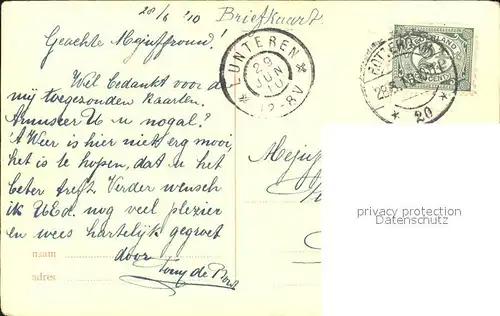 28/6 '10 Briefkaart
Geachte Mejuffrouw!
LUNTEREN
29
JUN
10
12-8V
ROTTERDAM
20
Wel bedankt voor de
mij toegezonden kaarten.
Amuseer U u nogal?
't Weer is hier niet erg mooi,
het is te hopen, dat u het
beter treft. Verder wensch
ik UEd. nog veel plezier
en wees hartelijk gegroet
door
Tony de
naam
adres
Mejuf
privacy protection
DATENSCHUTZ